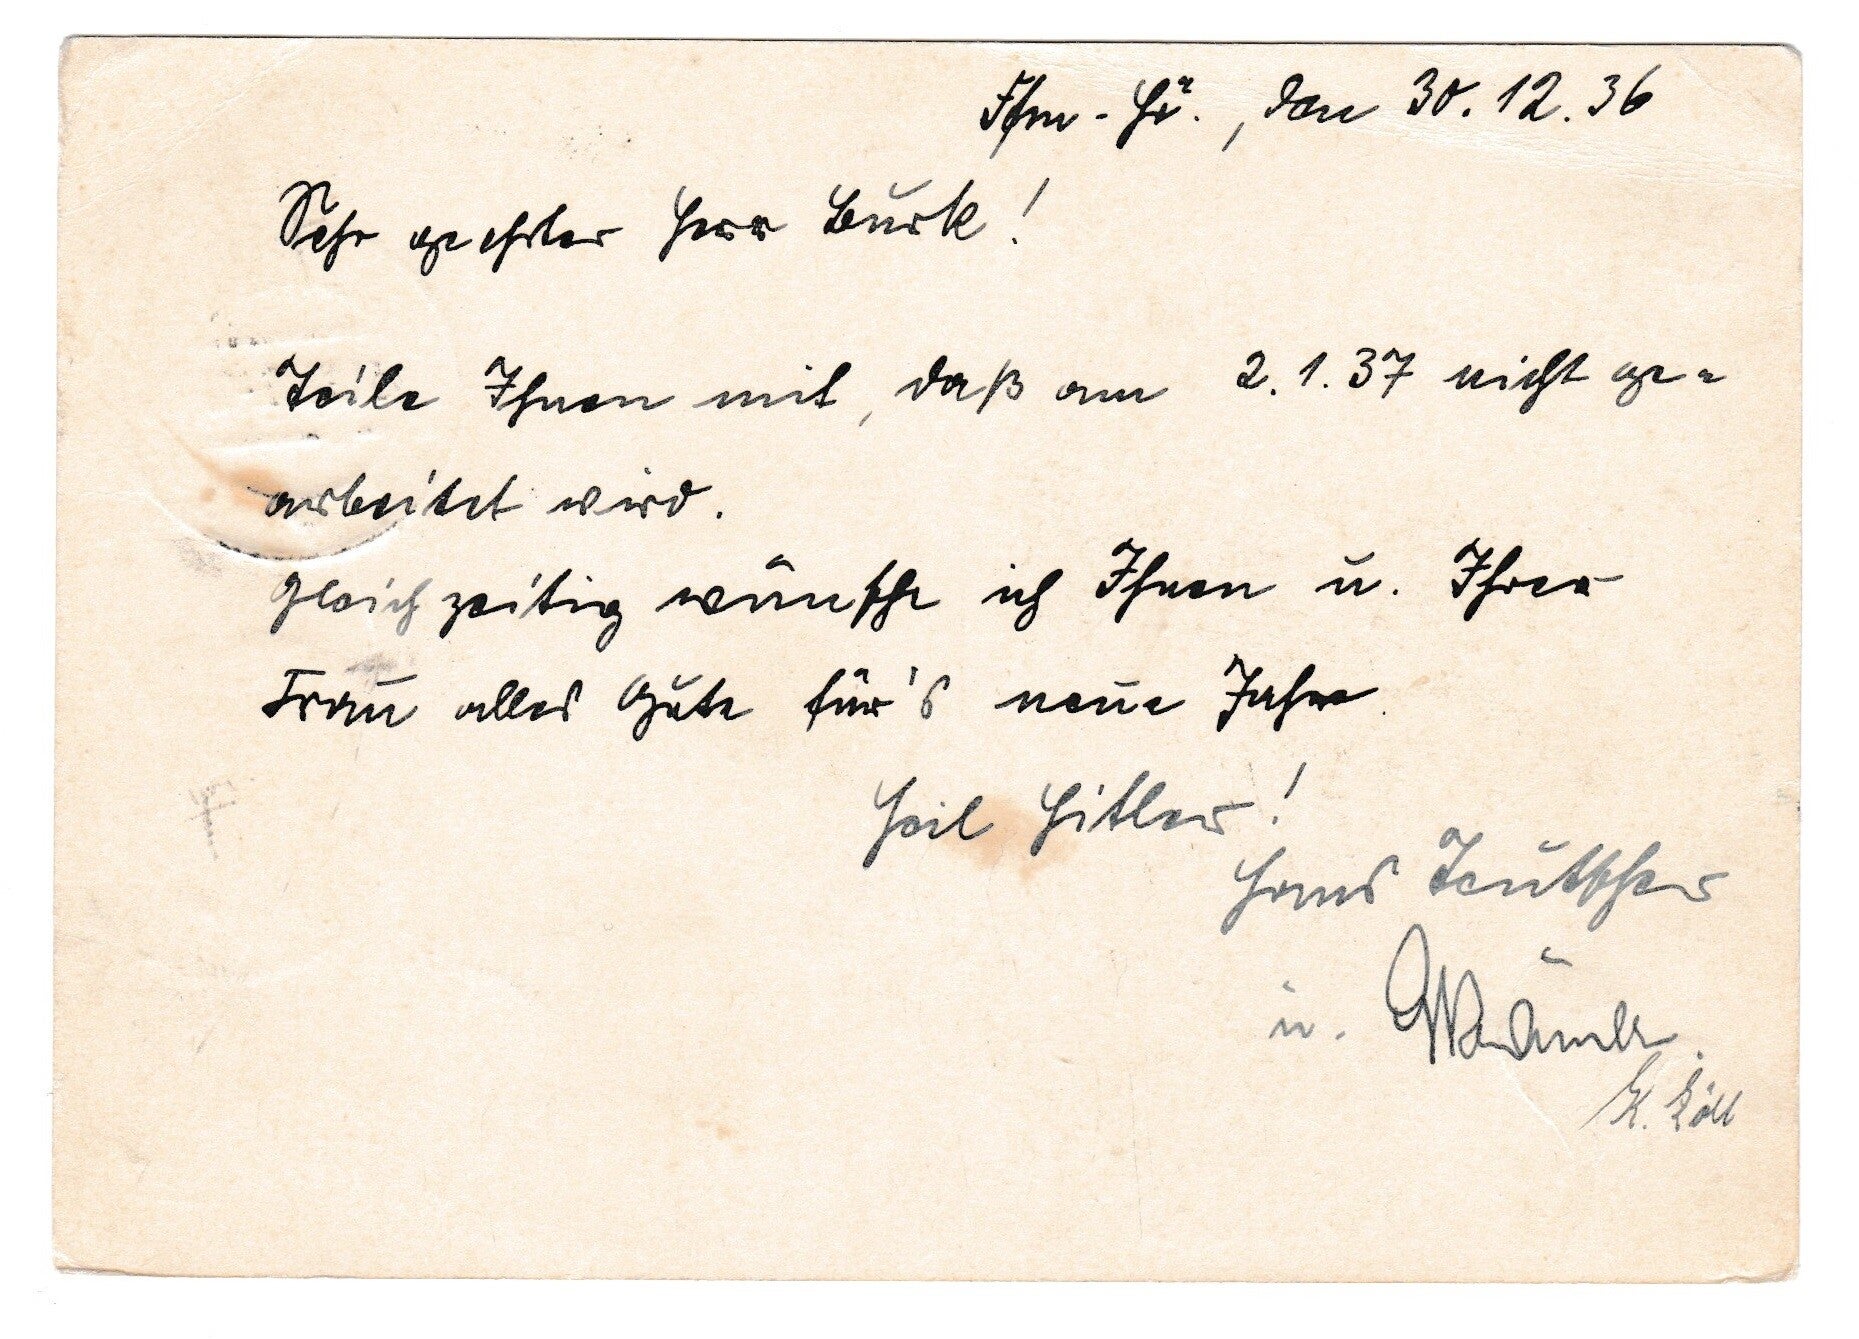 Ffm - Hö., den 30.12.36
Sehr geehrter Herr Burk!
Teile Ihnen mit, daß am 2.1.37 nicht ge-
arbeitet wird.
Gleichzeitig wünsche ich Ihnen u. Ihrer
Frau alles Gute für's neue Jahr.
Heil Hitler!
Hans Teutscher
u.
K.